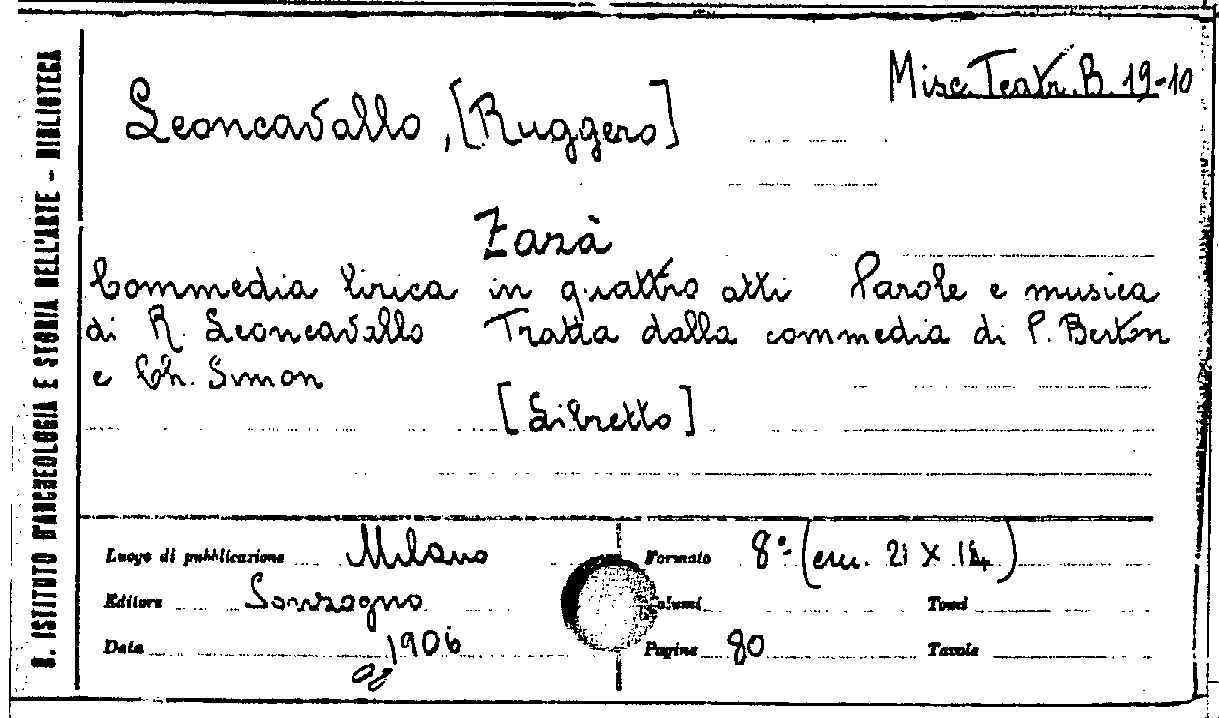 Misc. Teatr. B. 19-10
Leoncavallo, [Ruggero]
Zazà
Commedia lirica in quattro atti Parole e musica
di R. Leoncavallo Tratta dalla commedia di P. Berton
e Ch. Simon
[Libretto]
Luogo di pubblicazione Milano
Formato 8°- (cm. 21 X 14)
Editore Sonzogno
Volumi
Tomi
Data 1906
Pagine 80
Tavole
R. ISTITUTO D'ARCHEOLOGIA E STORIA DELL'ARTE - BIBLIOTECA